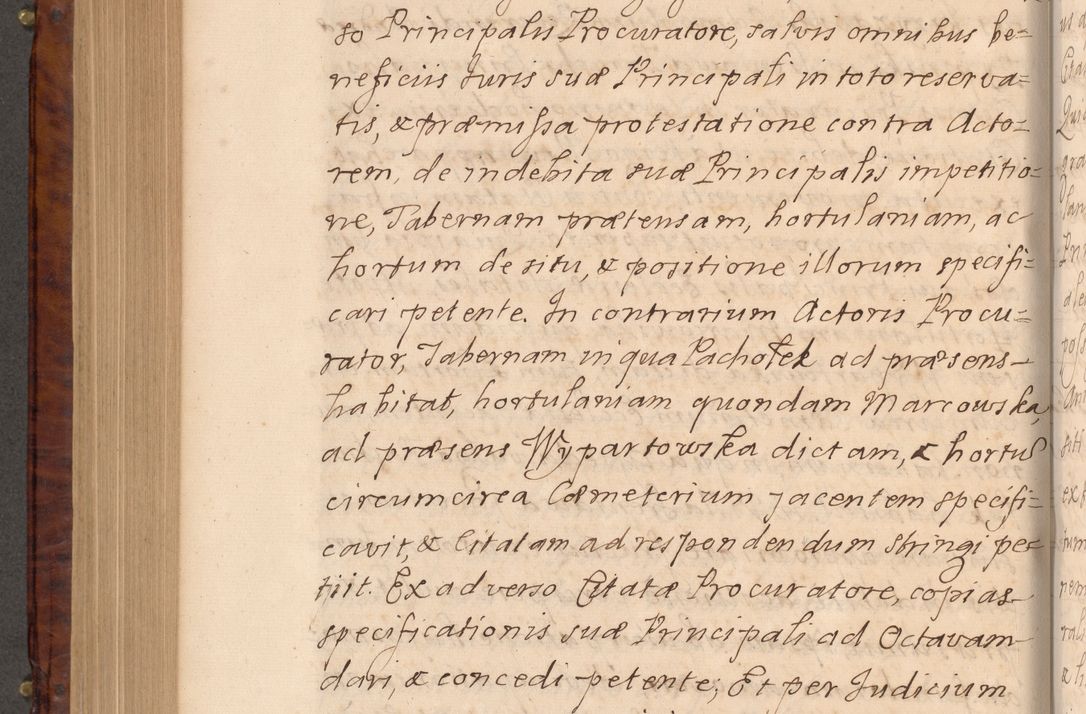 so Principalis Procuratore, salvis omnibus be=
neficiis Juris suæ Principali in toto reserva=
tis, & præmissa protestatione contra Acto=
rem, de indebita suæ Principalis impetitio=
ne, Tabernam prætensam, hortulaniam, ac
hortum de situ, & positione illorum specifi=
cari petente. In contrarium Actoris Procu=
rator, Tabernam in qua Pachołek ad præsens
habitat, hortulaniam quondam Marcowska,
ad præsens Wypartowska dictam, & hortu
circumcirca Cæmeterium jacentem specifi=
cavit, & Citatam ad respondendum stringi pe=
tiit. Ex adverso Citatæ Procuratore, copias
specificationis suæ Principali ad Octavam
dari, & concedi petente; Et per Judicium